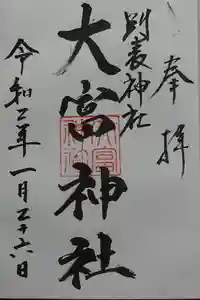 奉拝
別表神社
大富神社
令和二年一月二十六日